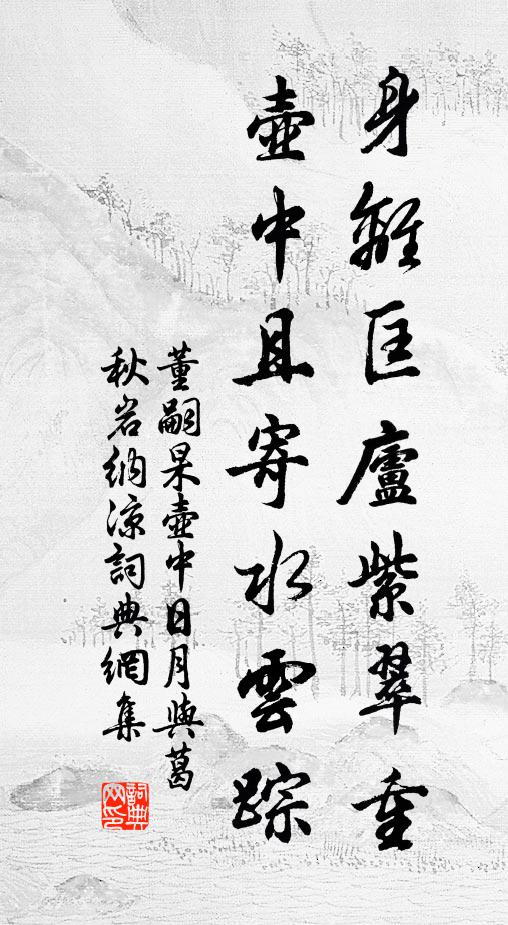 身離匡廬紫翠重
壺中且寄水雲踪
董嗣杲壺中日月與葛
秋岩納凉詞典網集
詞典網印